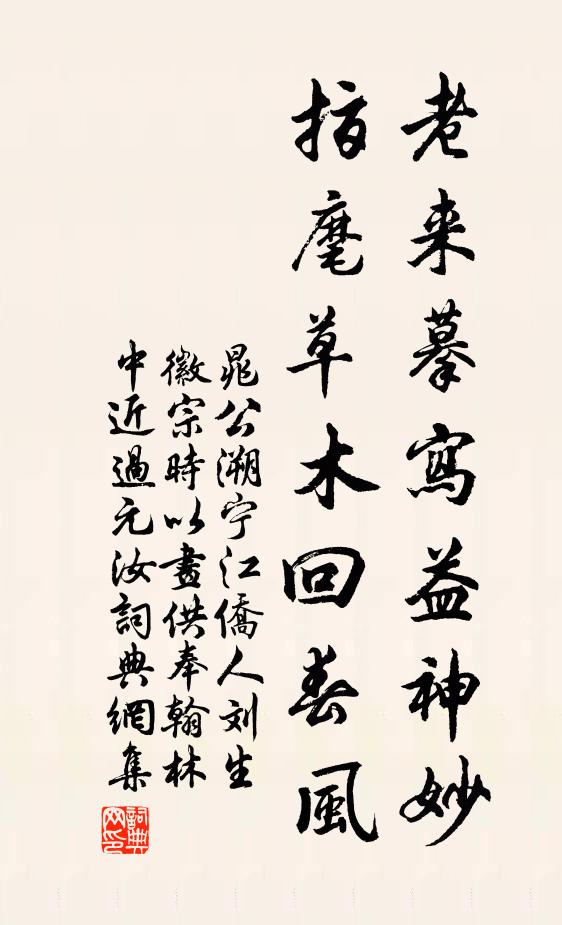 老来摹寫益神妙
指麾草木回春風
晁公溯宁江僑人刘生
徽宗時以畫供奉翰林
中近過元汝詞典網集
詞典网印